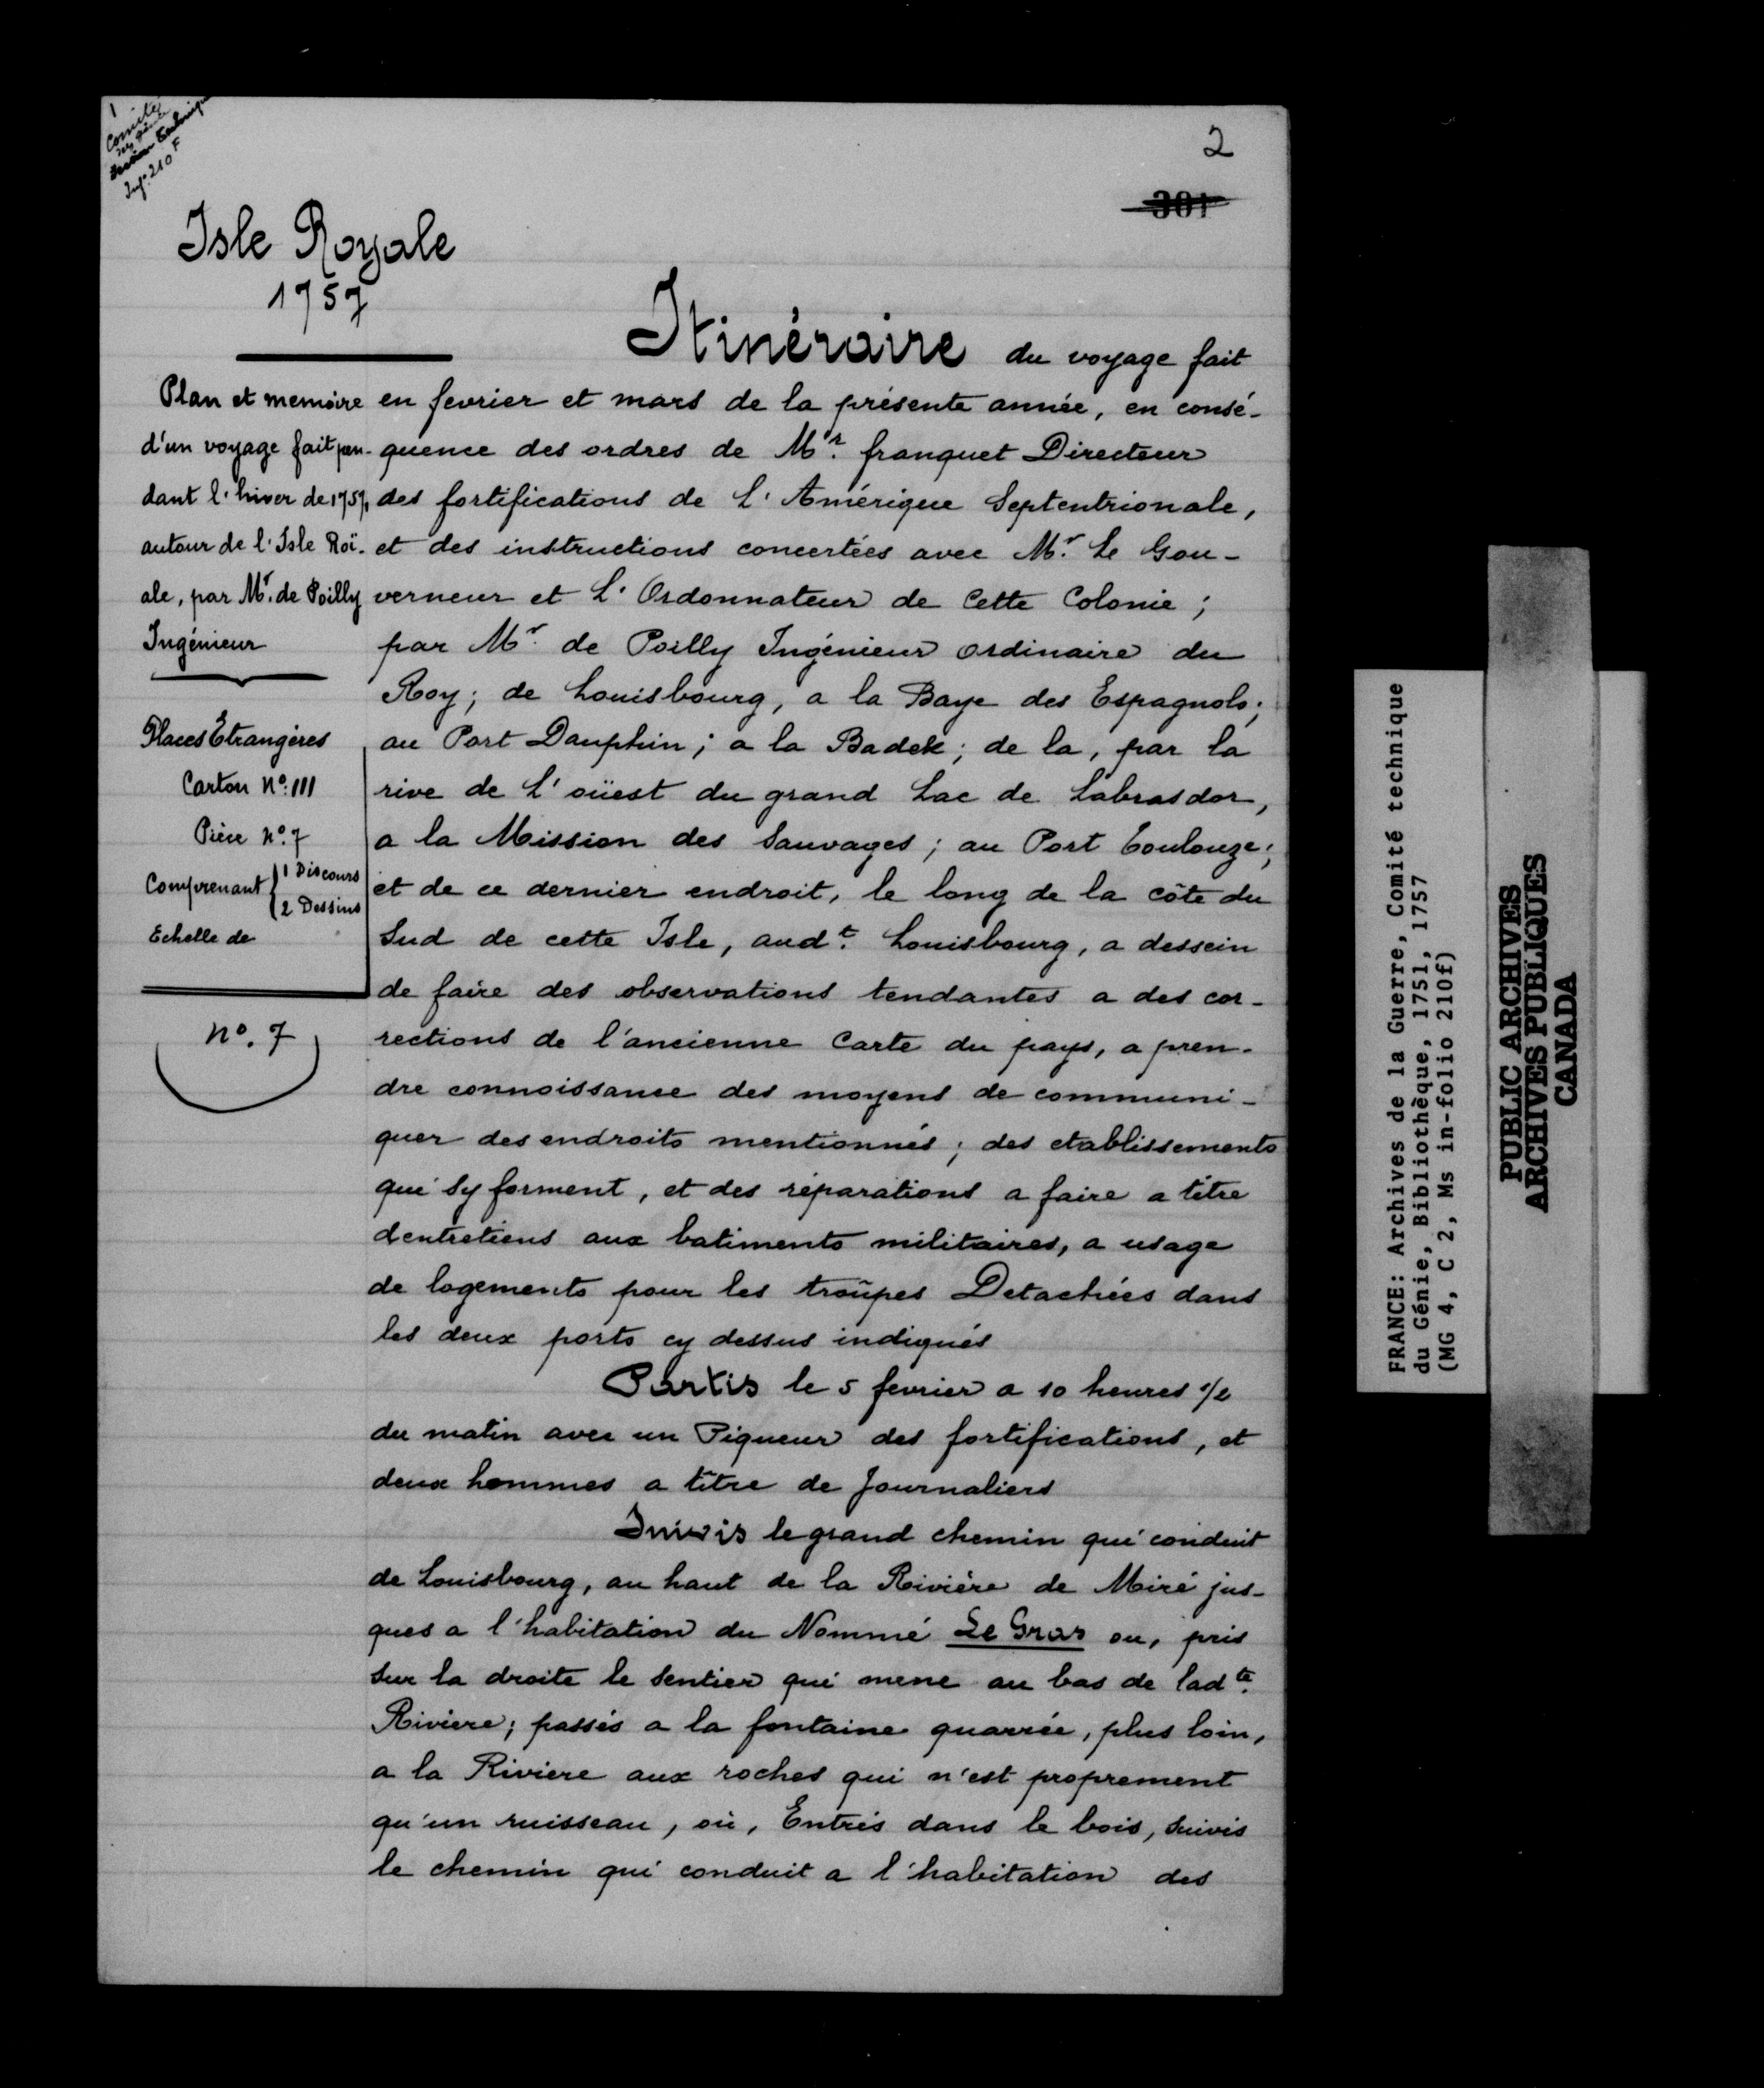 1
Comité
Section Technique
Inf. 210 F
2
301
Isle Royale
1757
Plan et memoire
d'un voyage fait pen-
dant l'hiver de 1757,
autour de l'Isle Roï-
ale, par Mr. de Poilly
Ingénieur
Places Étrangères
Carton No. 111
Pièce No. 7
Comprenant { 1 Discours
2 Dessins
Echelle de
No. 7
Itinéraire du voyage fait
en fevrier et mars de la présente année, en consé-
quence des ordres de Mr. franquet Directeur
des fortifications de L'Amérique Septentrionale,
et des instructions concertées avec Mr. Le Gou-
verneur et L'Ordonnateur de Cette Colonie ;
par Mr. de Poilly Ingénieur ordinaire du
Roy ; de Louisbourg, a la Baye des Espagnols ;
au Port Dauphin ; a la Badek ; de la, par la
rive de L'oüest du grand Lac de Labrasdor,
a la Mission des Sauvages ; au Port Toulouze ;
et de ce dernier endroit, le long de la côte du
Sud de cette Isle, audt. Louisbourg, a dessein
de faire des observations tendantes a des cor-
rections de l'ancienne Carte du pays, a pren-
dre connoissance des moyens de communi-
quer des endroits mentionnés ; des etablissements
qui Sy forment, et des réparations a faire a titre
dentretiens aux batiments militaires, a usage
de logements pour les troupes Detachées dans
les deux ports cy dessus indiqués
Partis le 5 fevrier a 10 heures 1/2
du matin avec un Piqueur des fortifications, et
deux hommes a titre de Journaliers
Suivis le grand chemin qui conduit
de Louisbourg, au haut de la Rivière de Miré jus-
ques a l'habitation du Nommé Le Gras ou, pris
sur la droite le Sentier qui mene au bas de ladte.
Riviere ; passés a la fontaine quarrée, plus loin,
a la Riviere aux roches qui n'est proprement
qu'un ruisseau, où, Entrés dans le bois, Suivis
le chemin qui conduit a l'habitation des
FRANCE: Archives de la Guerre, Comité technique
du Génie, Bibliothèque, 1751, 1757
(MG 4, C 2, Ms in-folio 210f)
PUBLIC ARCHIVES
ARCHIVES PUBLIQUES
CANADA